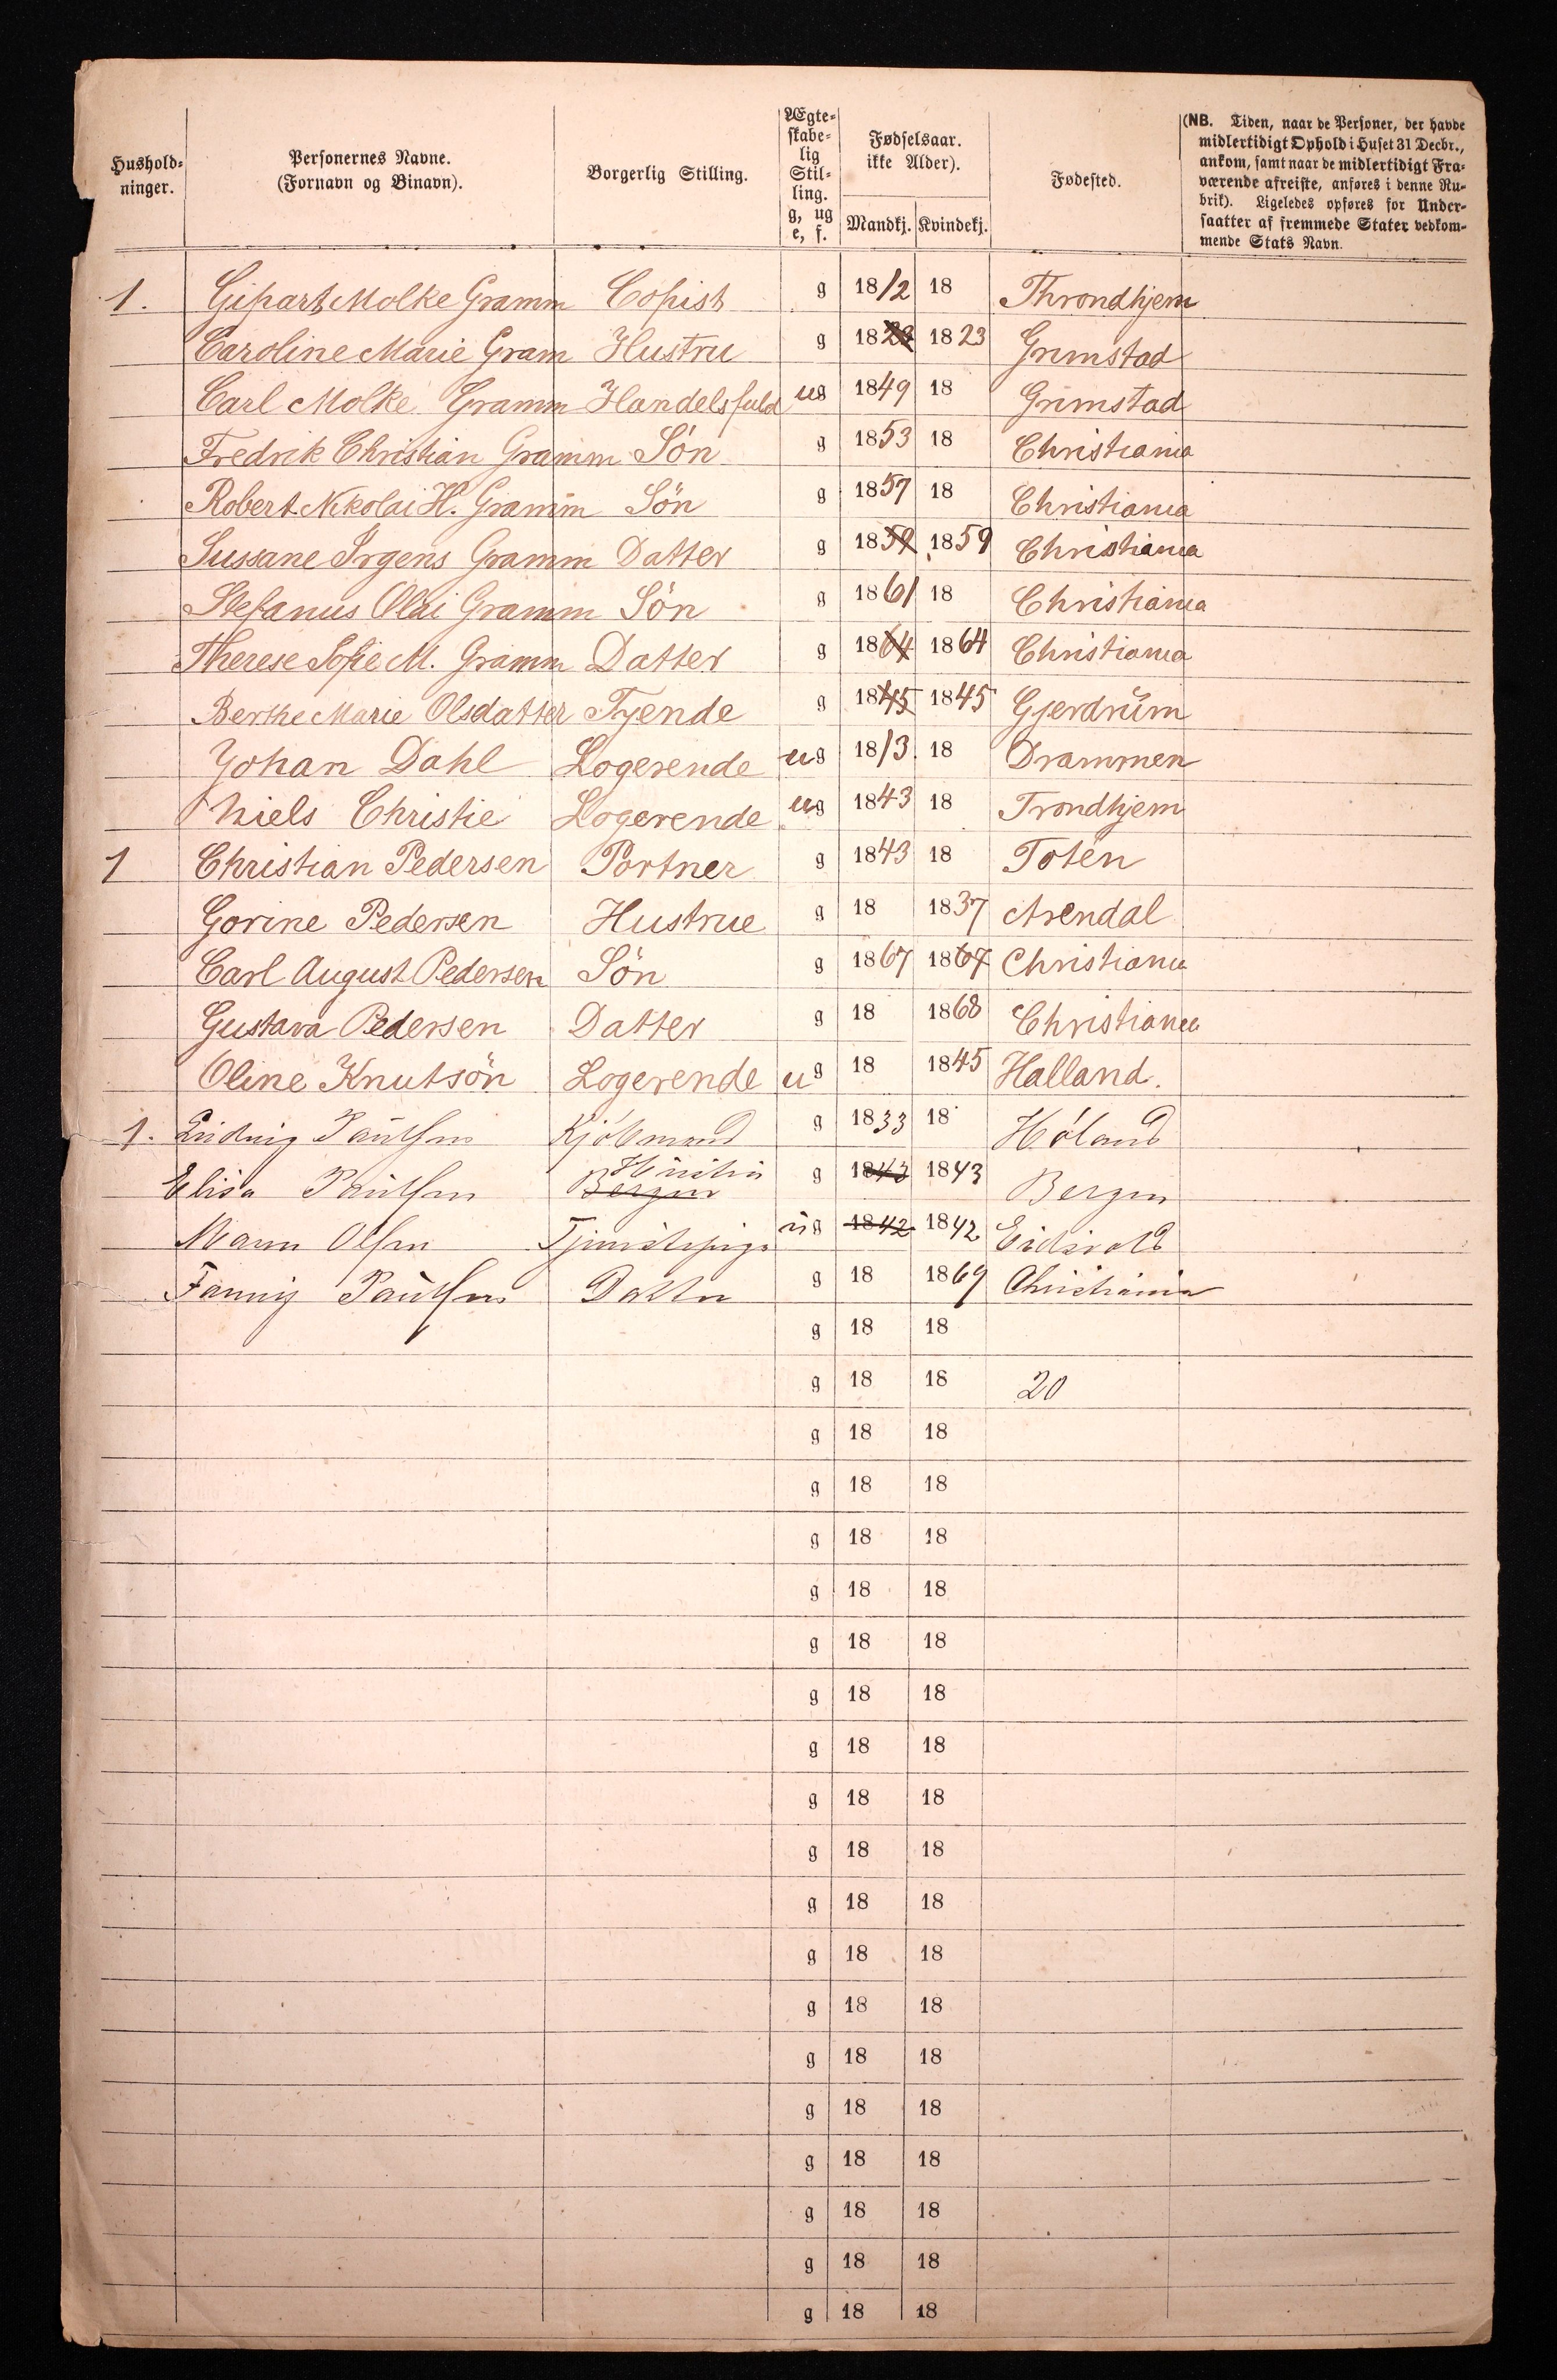 Hushold-
ninger.
Personernes Navne.
(Fornavn og Binavn).
Borgerlig Stilling.
Ægte-
skabe-
lig
Stil-
ling.
g, ug
e, f.
Fødselsaar.
ikke Alder).
Mandkj. Kvindekj.
Fødested.
(NB. Tiden, naar de Personer, der havde
midlertidigt Ophold i Huset 31 Decbr.,
ankom, samt naar de midlertidigt Fra-
værende afreiste, anføres i denne Ru-
brik). Ligeledes opføres for Under-
saatter af fremmede Stater vedkom-
mende Stats Navn.
1. Molke Gramm Copist g 1812 18 Throndhjem
Caroline Marie Gram Hustru g 1823 1823 Grimstad
Carl Molke Gramm Handelsfuld ug 1849 18 Grimstad
Fredrik Christian Gramm Sön g 1853 18 Christiania
Robert Nikolai H. Gramm Sön g 1857 18 Christiania
Sussane Irgens Gramm Datter g 1859 1859 Christiania
Stefanus Olai Gramm Sön g 1861 18 Christiania
Therese Sofie M. Gramm Datter g 1864 1864 Christiania
Berthe Marie Olsdatter Tjende g 1845 1845 Gjerdrŭm
Johan Dahl Logerende ug 1813. 18 Drammen
Niels Christie Logerende ug 1843 18 Trondhjem
1 Christian Pedersen Portner g 1843 18 Toten
Gorine Pedersen Hustrue g 18 1837 Arendal
Carl August Pedersen Sön g 1867 1867 Christiania
Gustava Pedersen Datter g 18 1868 Christiania
Oline Knutsön Logerende ug 18 1845 Halland.
1. Ludvig Paulsen Kjöbmand g 1833 18 Höland
Elisa Paulsen Bergen Hustru g 1843 1843 Bergen
Maren Olsen Tjenestepige ug 1842 1842 Eidsvold
Fanny Paulsen Datter g 18 1869 Christiania
g 18 18
g 18 18 20
g 18 18
g 18 18
g 18 18
g 18 18
g 18 18
g 18 18
g 18 18
g 18 18
g 18 18
g 18 18
g 18 18
g 18 18
g 18 18
g 18 18
g 18 18
g 18 18
g 18 18
g 18 18